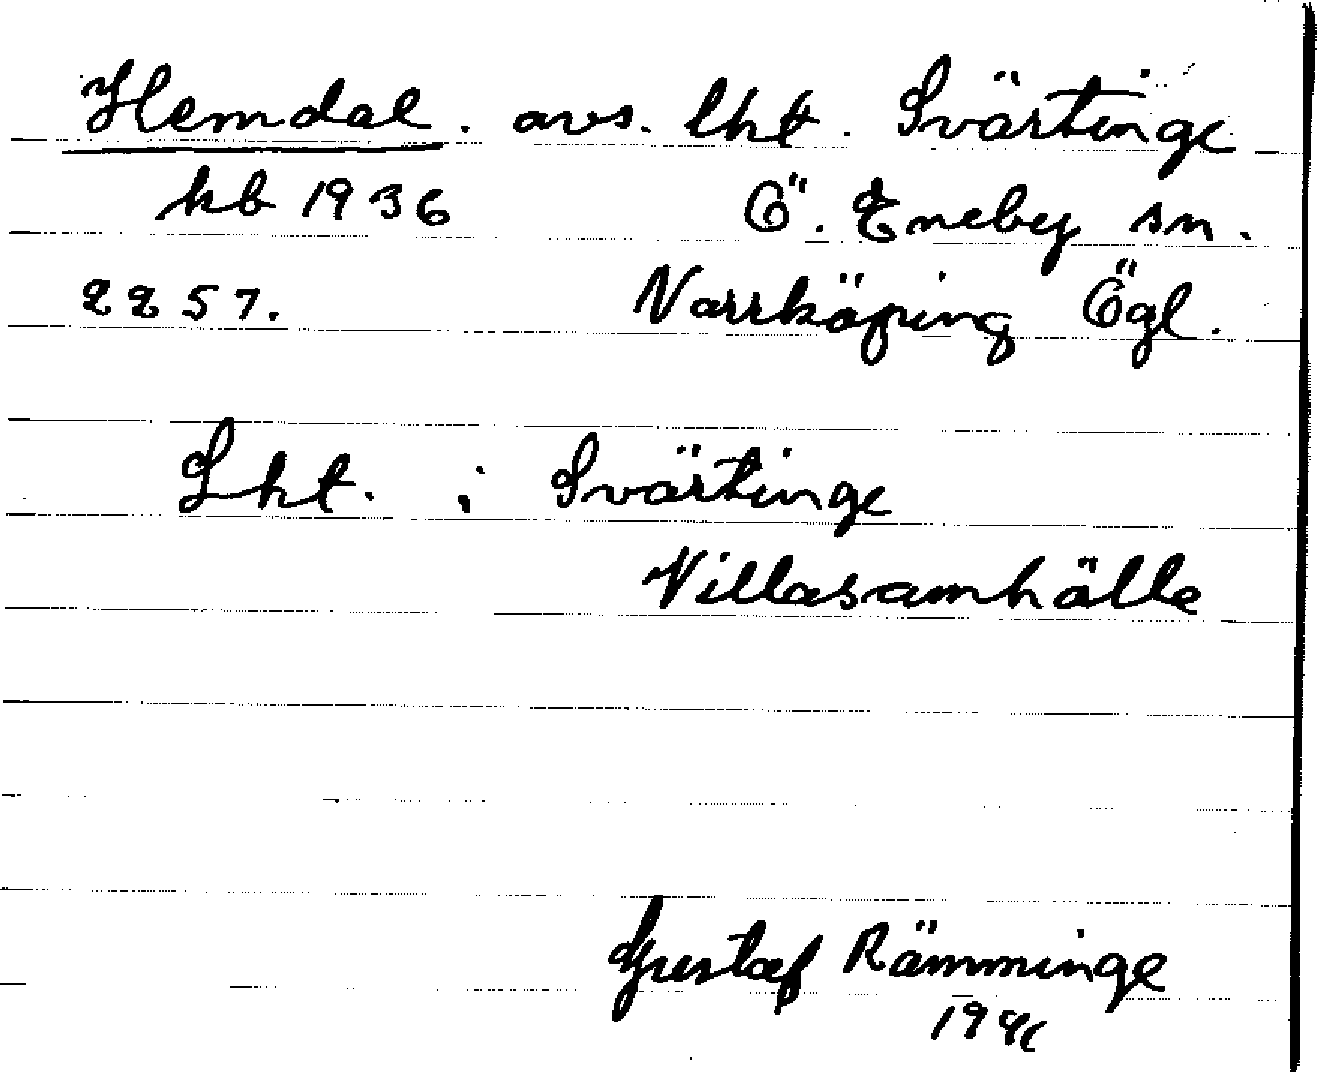 Hemdal. avs. lht. Svärtinge
kb 1936 Ö. Eneby sn.
2257. Norrköping Ögl.
Lht. i Svärtinge
Villasamhälle
Gustaf Rämminge